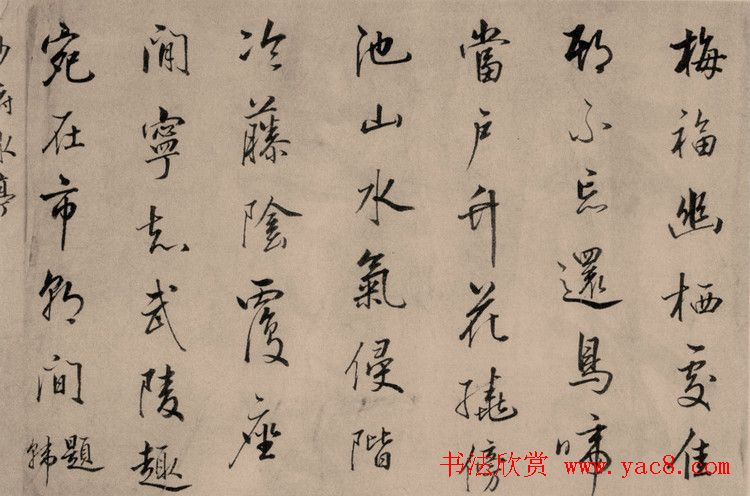 梅福幽栖處佳
期不忘還鳥啼
當戶竹花繞傍
池山水氣侵階
冷藤陰覆座
閒寧知武陵趣
宛在市朝間
題韓
少府水亭
书法欣赏 www.yac8.com